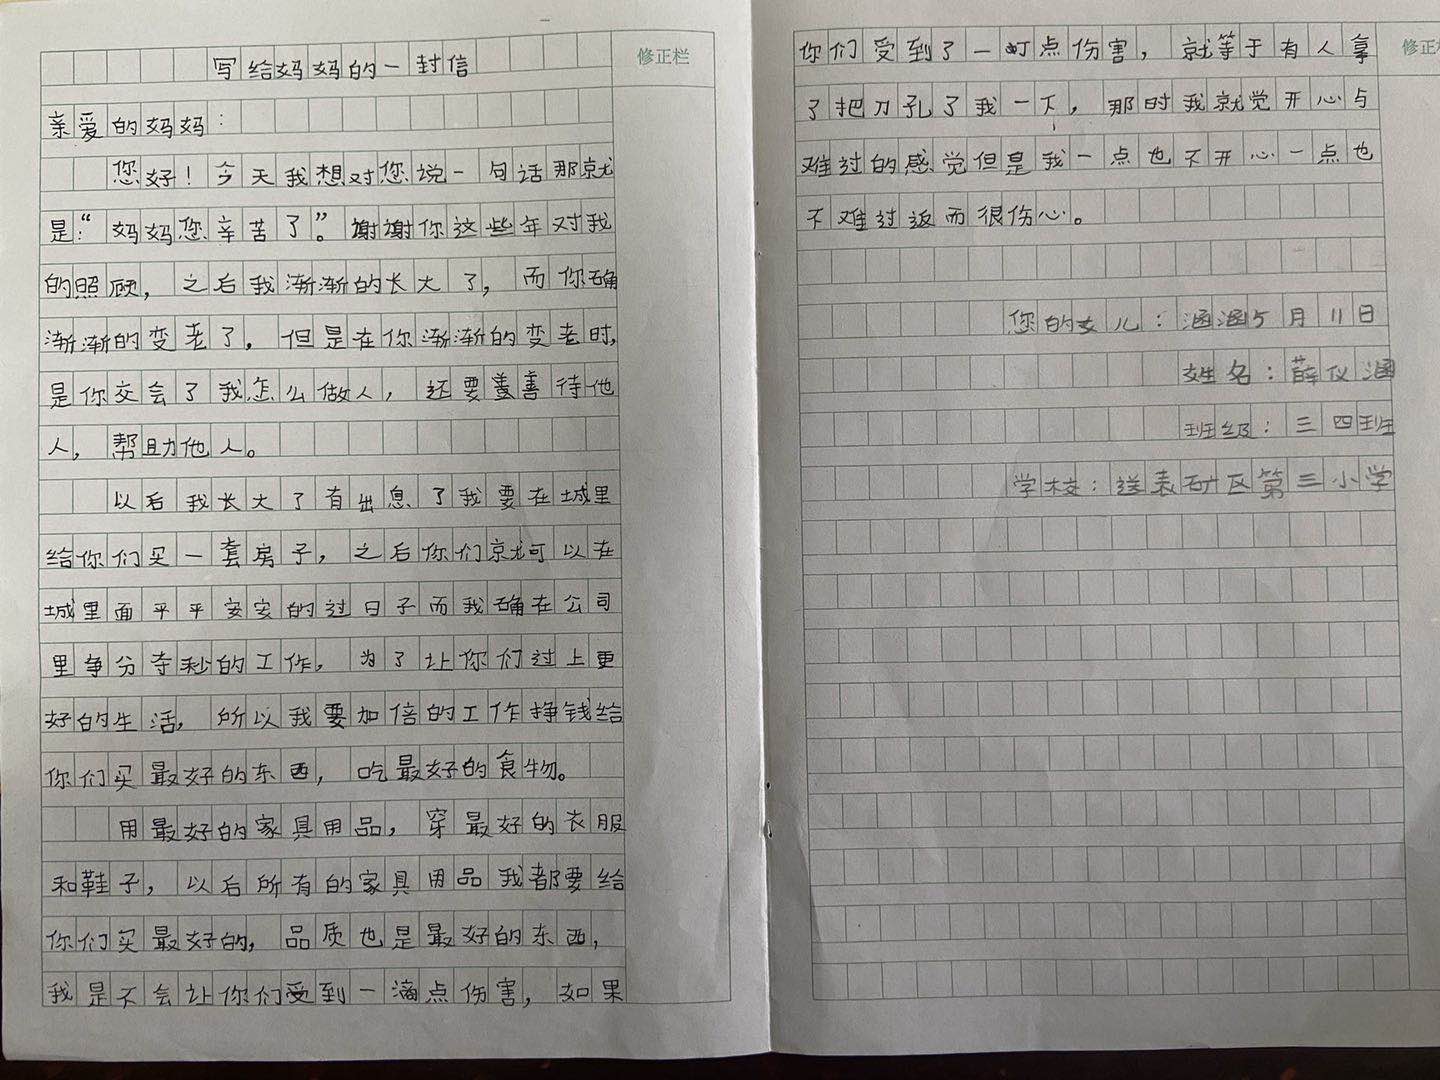 写给妈妈的一封信
修正栏
亲爱的妈妈：
您好！今天我想对您说一句话那就
是：“妈妈您辛苦了”。谢谢你这些年对我
的照顾，之后我渐渐的长大了，而你确
渐渐的变老了，但是在你渐渐的变老时，
是你交会了我怎么做人，还要善善待他
人，帮助他人。
以后我长大了有出息了我要在城里
给你们买一套房子，之后你们就可以在
城里面平平安安的过日子而我确在公司
里争分夺秒的工作，为了让你们过上更
好的生活，所以我要加倍的工作挣钱给
你们买最好的东西，吃最好的食物。
用最好的家具用品，穿最好的衣服
和鞋子，以后所有的家具用品我都要给
你们买最好的，品质也是最好的东西，
我是不会让你们受到一滴点伤害，如果
你们受到了一点伤害，就等于有人拿
修正
了把刀孔了我一下，那时我就觉开心与
难过的感觉但是我一点也不开心一点也
不难过返而很伤心。
您的女儿：涵涵5月11日
姓名：薛仪涵
班级：三四班
学校：送表矿区第三小学